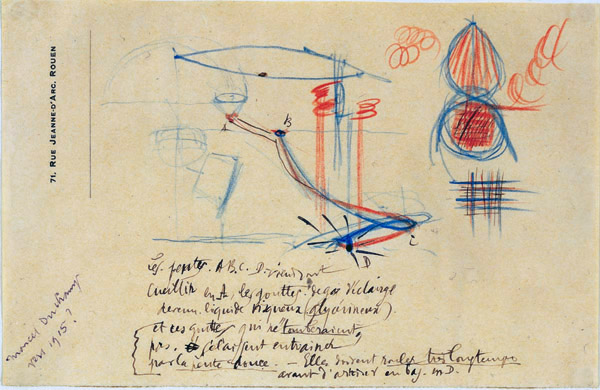 71, RUE JEANNE-D'ARC, ROUEN
A
B
C
D
Les pentes. A B. C. D. viendront
Cueillir en A, les gouttes de gaz d'éclairage
devenu liquide visqueux (glycérineux).
et ces gouttes qui ne tomberaient,
pas, laissent entrainer
par la pente douce. Elles doivent rouler très longtemps
avant d'arriver en D.
Marcel Duchamp
vers 1915?